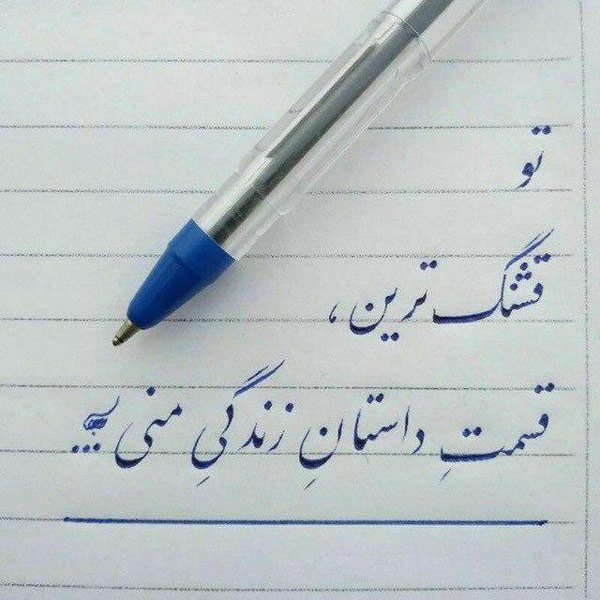 تو
قشنگ ترین ،
قسمتِ داستانِ زندگیِ منی